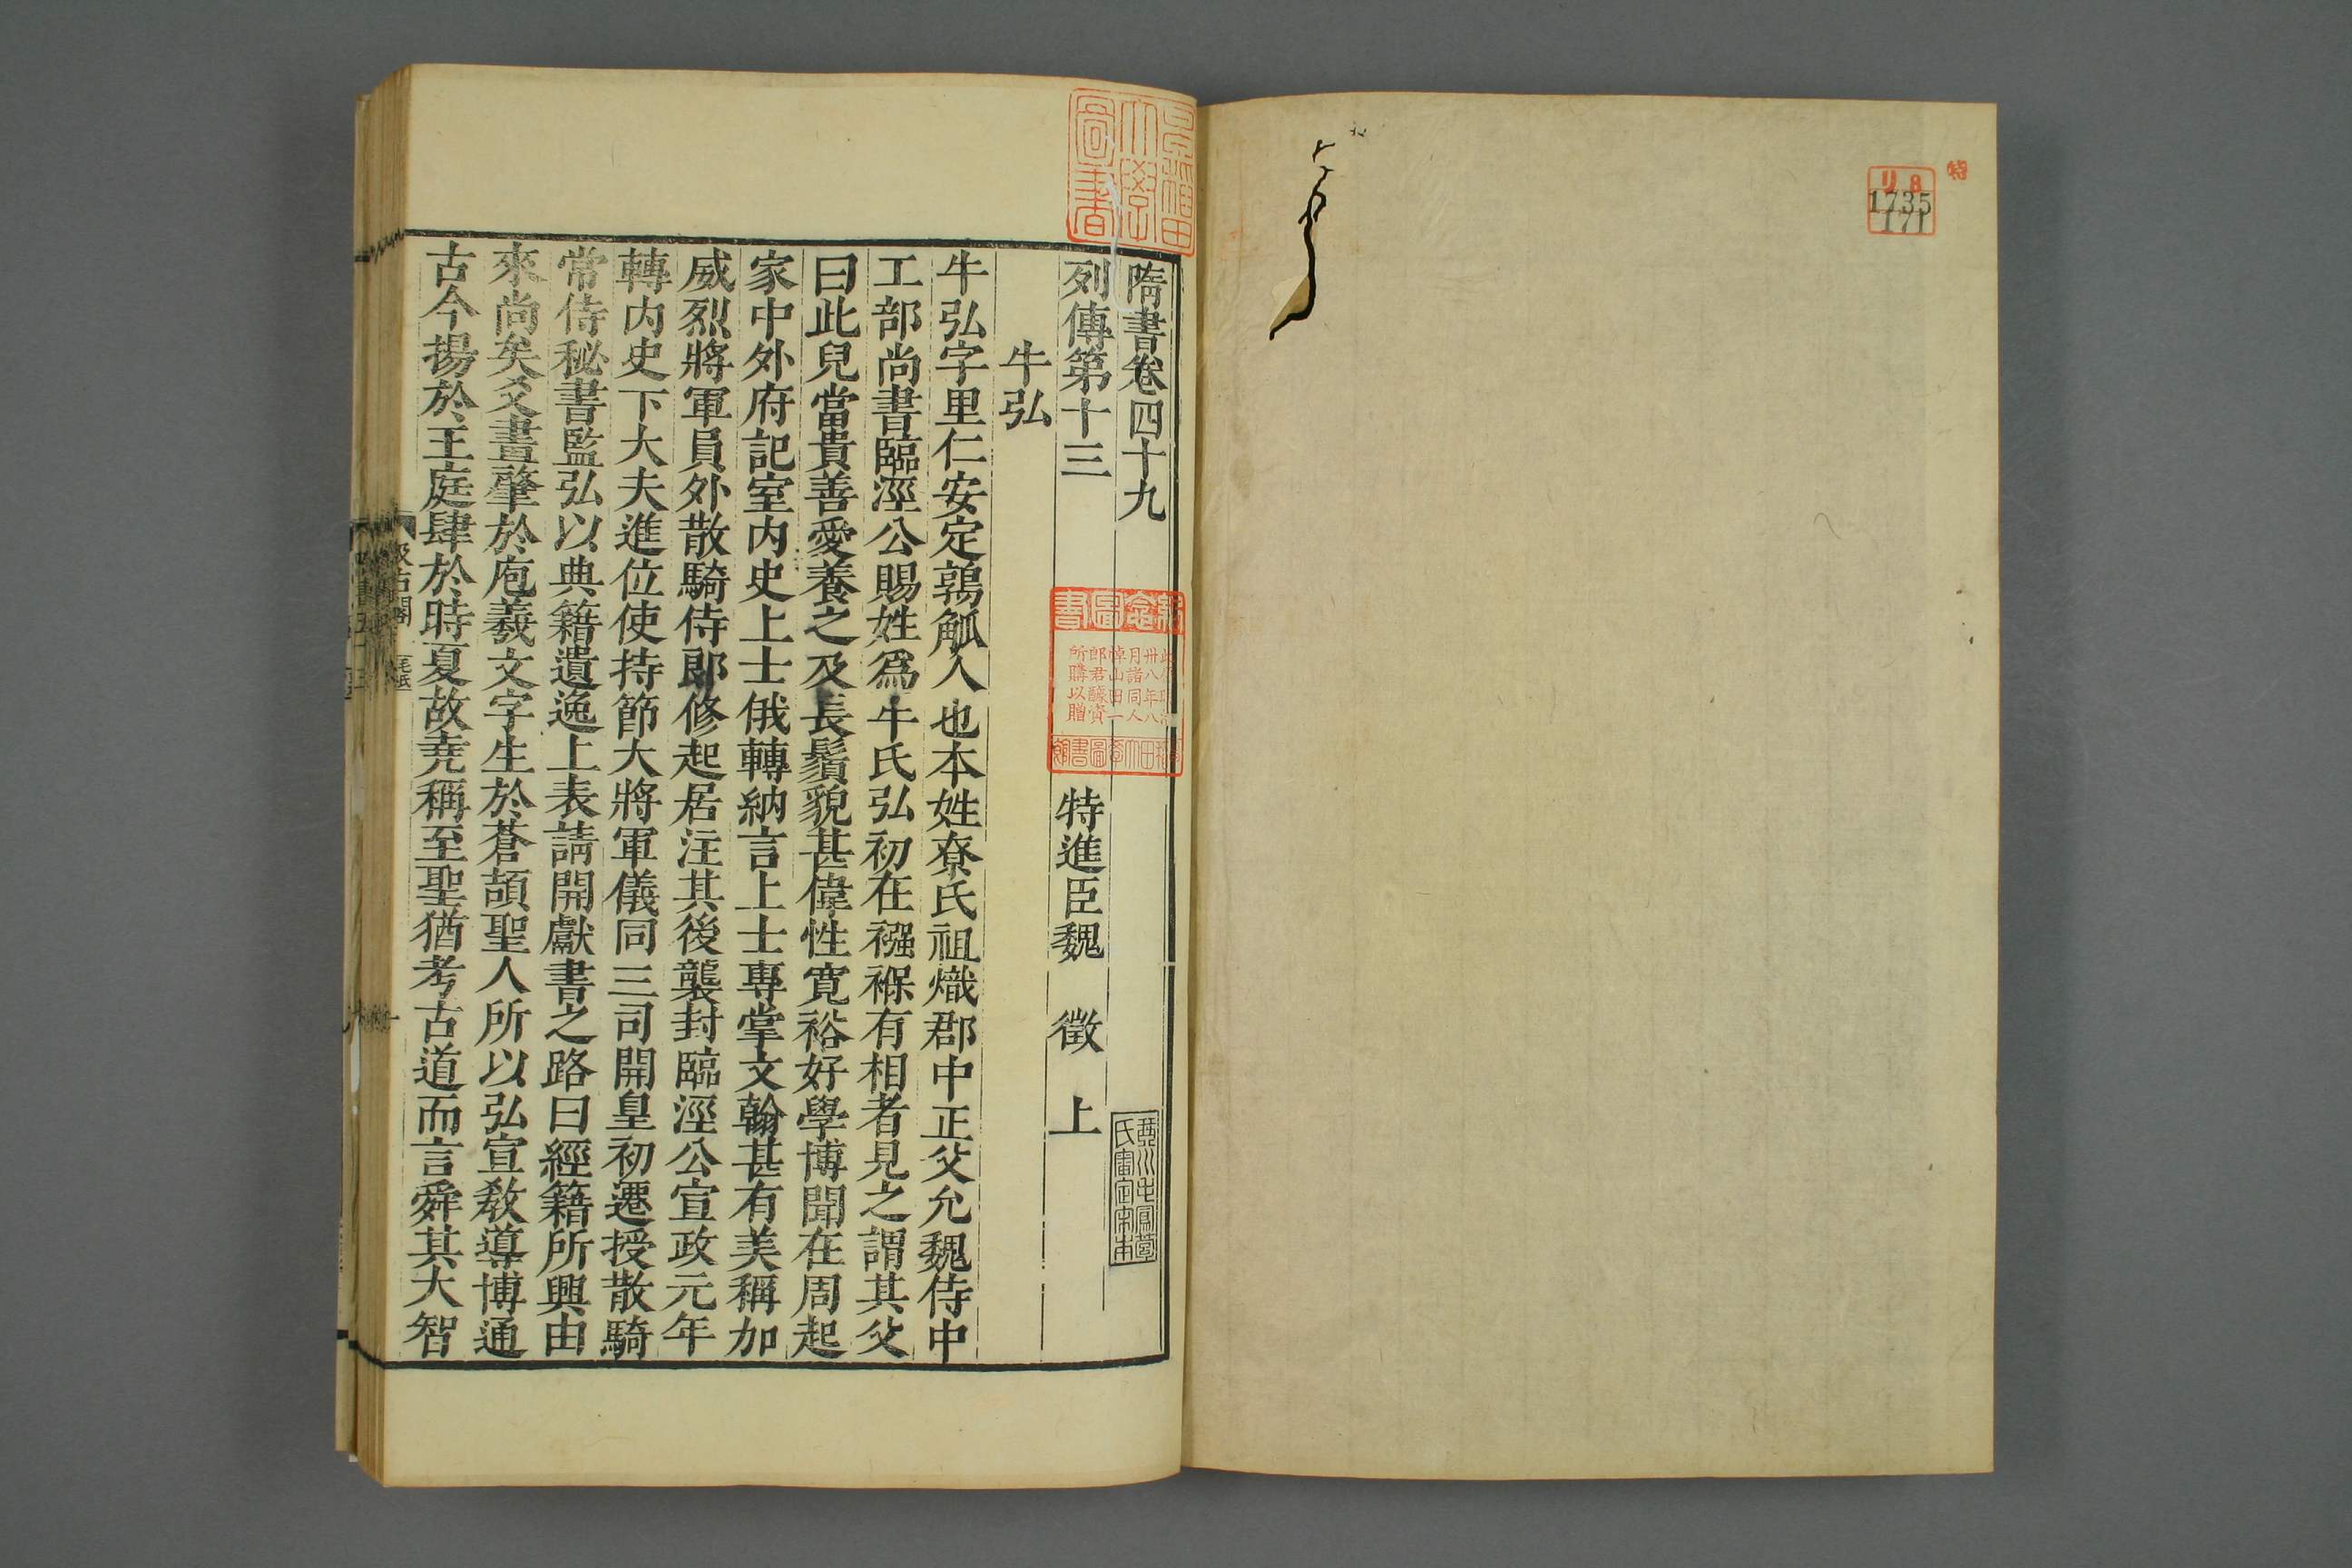 特
リ8
1735
171
早稲田大學圖書
隋書卷四十九
列傳第十三
特進臣魏 徵 上
牛弘
牛弘字里仁安定鶉觚人也本姓尞氏祖熾郡中正父允魏侍中
工部尚書臨涇公賜姓爲牛氏弘初在襁褓有相者見之謂其父
曰此兒當貴善愛養之及長鬚貌甚偉性寬裕好學博聞在周起
家中外府記室内史上士俄轉納言上士專掌文翰甚有美稱加
威烈將軍員外散騎侍郎修起居注其後襲封臨涇公宣政元年
轉内史下大夫進位使持節大將軍儀同三司開皇初遷授散騎
常侍秘書監弘以典籍遺逸上表請開獻書之路曰經籍所興由
來尚矣爻畫肇於庖羲文字生於蒼頡聖人所以弘宣敎導博通
古今揚於王庭肆於時夏故堯稱至聖猶考古道而言舜其大智
汲古閣
毛氏